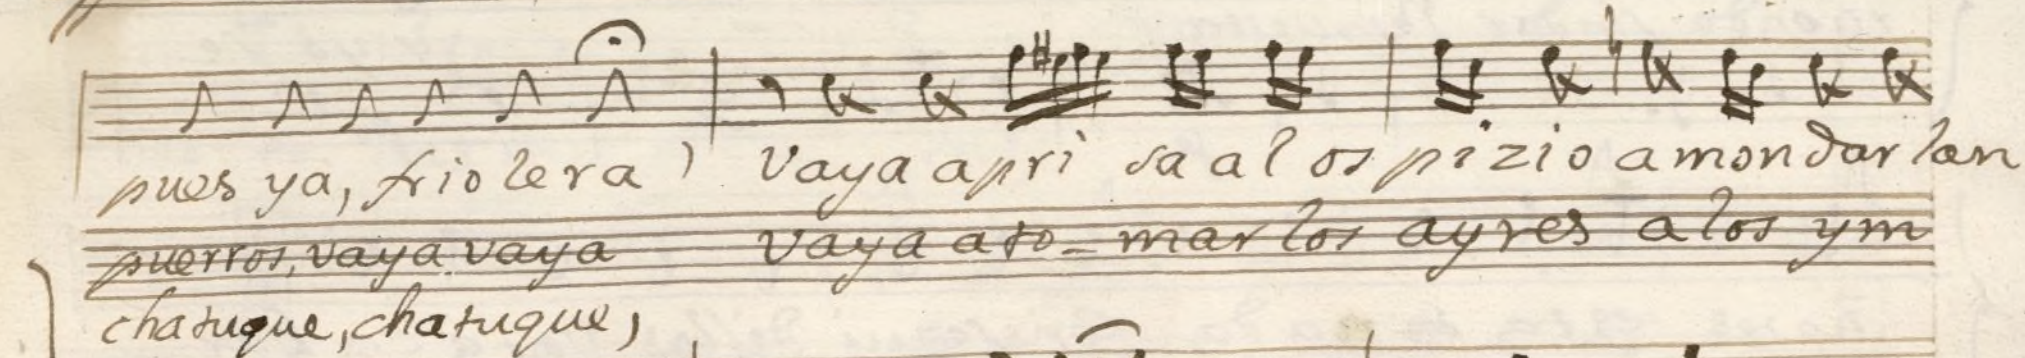 pues ya, friolera vaya apri sa al os pizio amondar lan
puerros, vaya vaya vaya ato-mar los ayres alos ym
chatuque, chatuque,